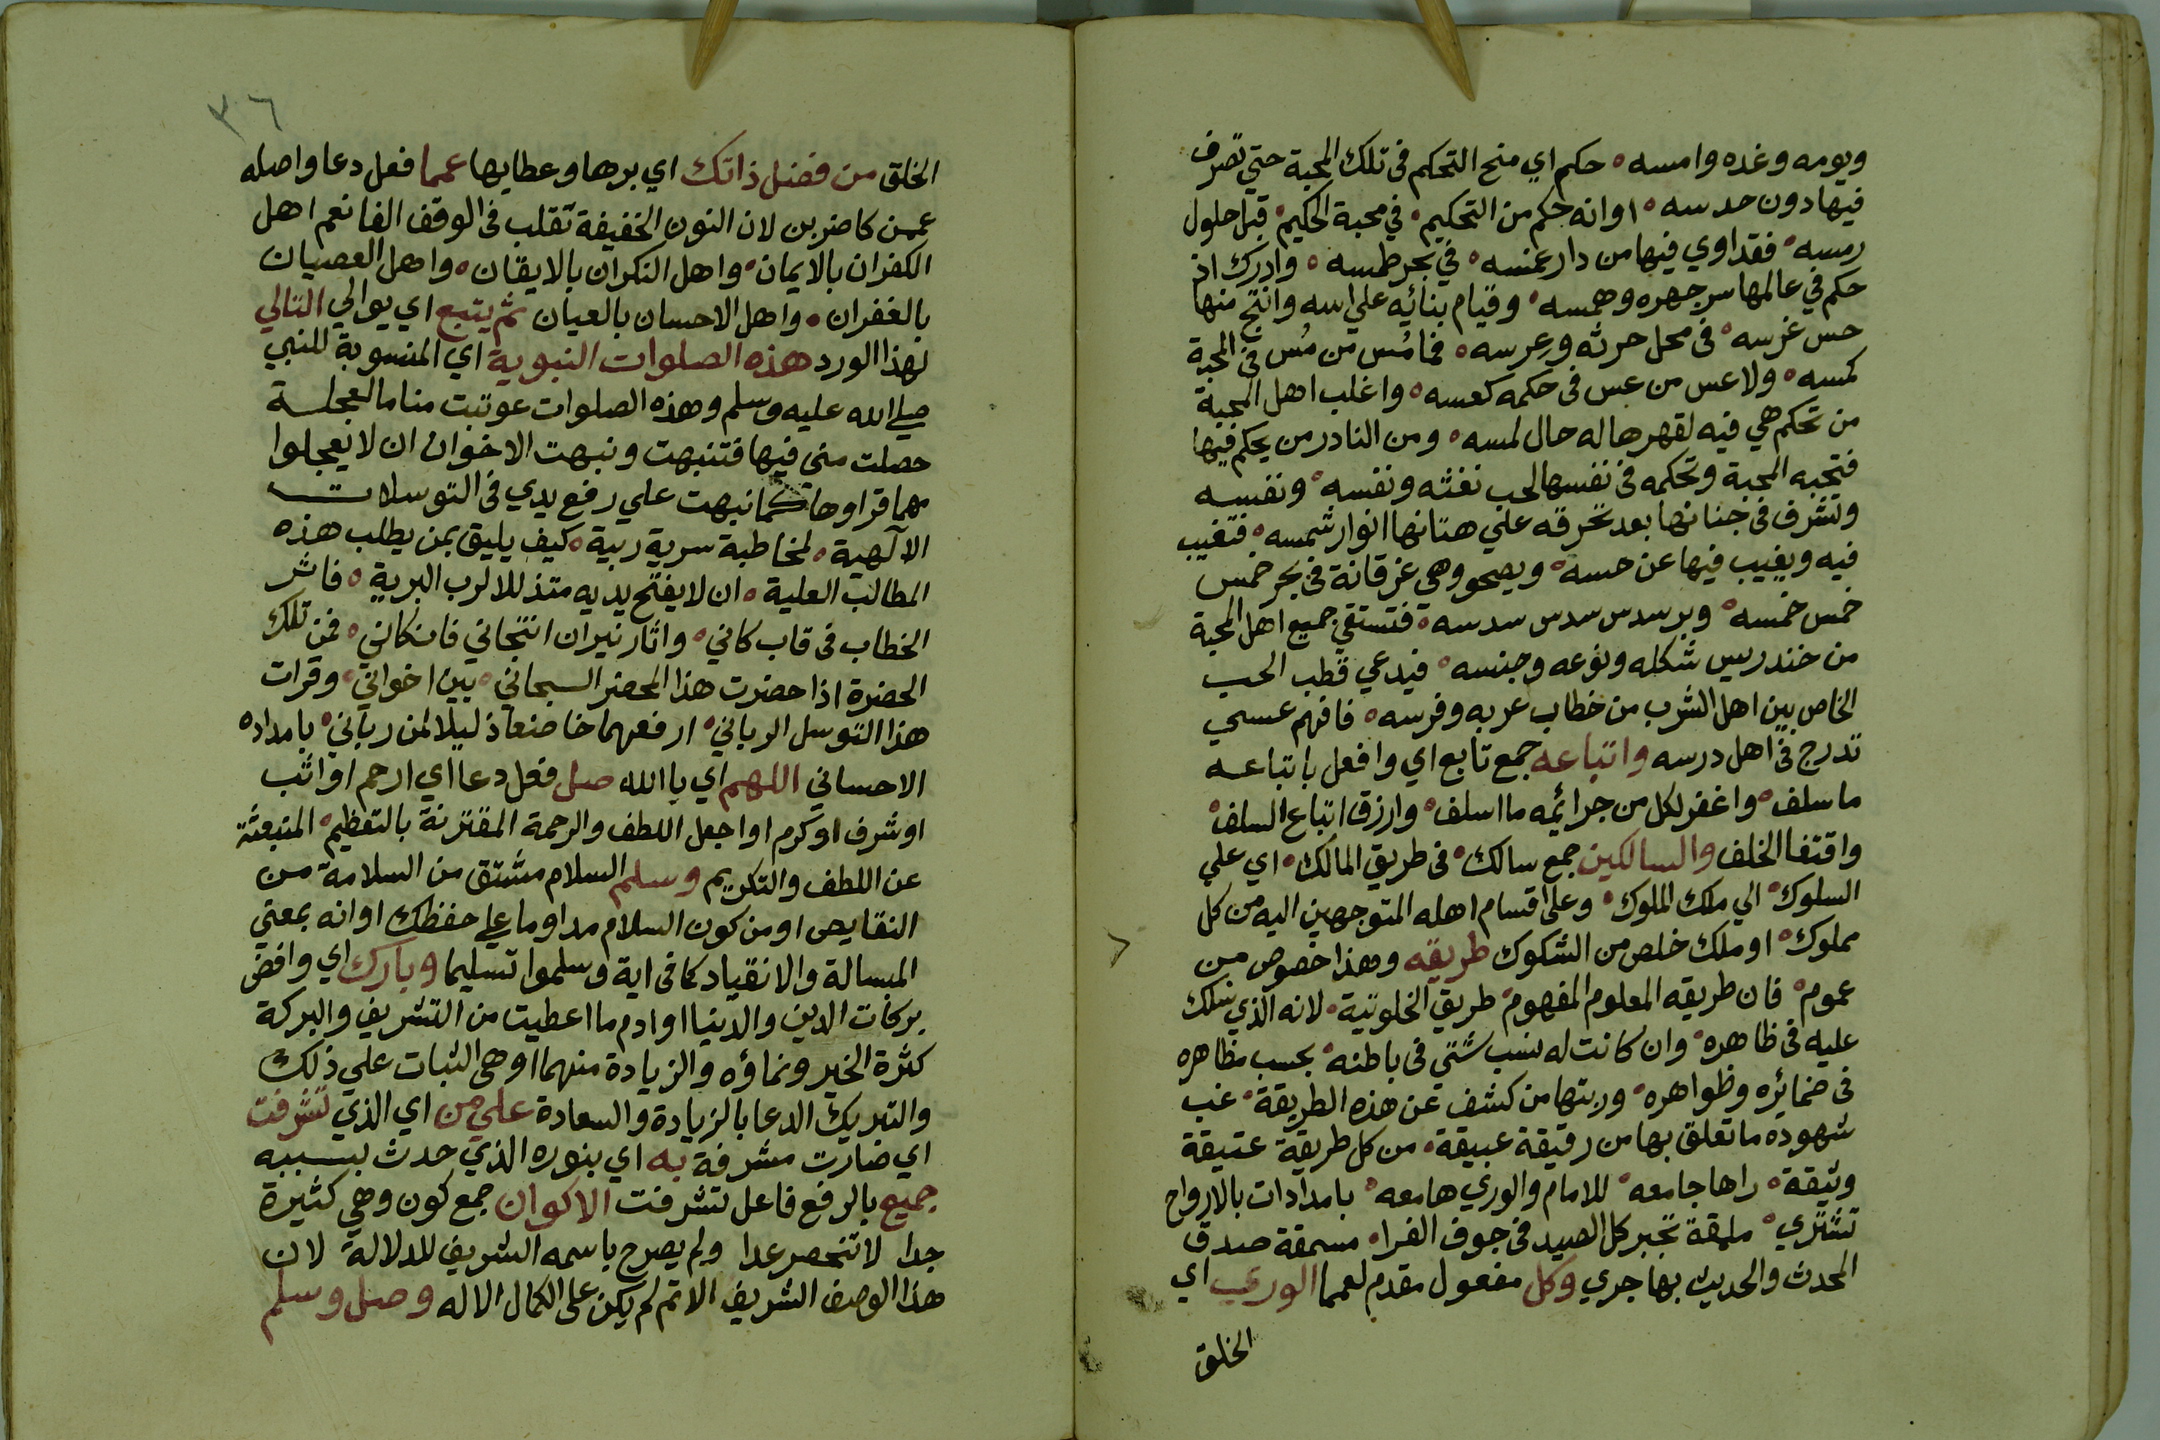 ويومه وغده وامسه ه حكم اي منح التحكم في تلك المحبة حتي تصرف
فيها دون حدسه ه او انه حكم من التحكيم ه في محبة الحكيم ه قبل حلول
رمسه ه فقد اوي فيها من دار عنسه ه في بحر طمسه ه وادرك اذ
حكم في عالمها سر جهره وهمسه ه وقيام بنائه علي اسه وانتج منها
حس غرسه ه في محل حرثه وعرسه ه فما مس من مس في المحبة
كمسه ه ولا عس من عس في حكمه كعسه ه واغلب اهل المحبة
من تحكم هي فيه لقهرها له حال لمسه ه ومن النادر من يحكم فيها
فتحبه المحبة وتحكمه في نفسها لحب نفثه ونفسه ه ونفسه
وتشرف في جنانها بعد تحرقه علي هتانها انوار شمسه ه فتغيب
فيه ويغيب فيها عن حسه ه ويصحو وهي غرقانة في بحر خمس
خمس خمسه ه وبر سدس سدس سدسه ه فتستقي جميع اهل المحبة
من خندريس شكله ونوعه وجنسه ه فيدعي قطب الحب
الخاص بين اهل الشرب من خطاب عربه وفرسه ه فافهم عسي
تدرج في اهل درسه واتباعه جمع تابع اي وافعل باتباعه
ما سلف ه واغفر لكل من جرائمه ما اسلف ه وارزق اتباع السلف ه
واقتفا الخلف والسالكين جمع سالك ه في طريق المالك ه اي علي
السلوك ه الي ملك الملوك ه وعلي اقسام اهله المتوجهين اليه من كل
مملوك ه او ملك خلص من الشكوك طريقه وهذا خصوص من
عموم ه فان طريقه المعلوم المفهوم ه طريق الخلوتية ه لانه الذي سلك
عليه في ظاهره ه وان كانت له نسب شتي في باطنه ه بحسب مظاهره
في ضمائره وظواهره ه وربتها من كشف عن هذه الطريقة ه غب
شهوده ما تعلق بها من رقيقة عبيقة ه من كل طريقة عتيقة
وثيقة ه راها جامعه ه للامام والوري هامعه ه بامدادات بالارواح
تشتري ه ملمقة تخبر كل الصيد في جوف الفرا ه مسمقة صدق
المحدث والحديث بها جري وكل مفعول مقدم لعمما الوري اي
الخلق
٣٦
الخلق من فضل ذاتك اي برها وعطايها عمما فعل دعا واصله
عممن كاضربن لان النون الخفيفة تقلب في الوقف الفا نعم اهل
الكفران بالايمان ه واهل النكران بالايقان ه واهل العصيان
بالغفران ه واهل الاحسان بالعيان ثم يتبع اي يوالي التالي
لهذا الورد هذه الصلوات النبوية اي المنسوبة للنبي
صلي الله عليه وسلم وهذه الصلوات عوتبت مناما لعجلة
حصلت مني فيها فتنبهت ونبهت الاخوان ان لا يعجلوا
مهما قراوها كما نبهت علي رفع يدي في التوسلات
الآلهية ه لمخاطبة سرية ربية ه كيف يليق بمن يطلب هذه
المطالب العلية ه ان لا يفتح يديه متذللا لرب البرية ه فاثر
الخطاب في قاب كاني ه واثار نيران انتجاني فانكاني ه فمن تلك
الحضرة اذا حضرت هذا المحضر السبحاني ه بين اخواني ه وقرات
هذا التوسل الرباني ه ارفعهما خاضعا ذليلا لمن رباني ه بامداده
الاحساني اللهم اي يا الله صل فعل دعا اي ارحم او اثب
او شرف او كرم او اجعل اللطف والرحمة المقترنة بالتعظيم ه المنبعثة
عن اللطف والتكريم وسلم السلام مشتق من السلامة من
النقايص او من كون السلام مداوما علي حفظك او انه بمعني
المسالة والانقياد كما في اية وسلموا تسليما وبارك اي وافض
بركات الدين والدنيا او ادم ما اعطيت من التشريف والبركة
كثرة الخير ونماؤه والزيادة منهما او هي الثبات علي ذلك
والتبريك الدعا بالزيادة والسعادة علي من اي الذي تشرفت
اي صارت مشرفة به اي بنوره الذي حدث بسببه
جميع بالرفع فاعل لتشرفت الاكوان جمع كون وهي كثيرة
جدا لا تنحصر عدا ولم يصرح باسمه الشريف للدلالة لان
هذا الوصف الشريف الاتم لم يكن علي الكمال الا له وصل وسلم